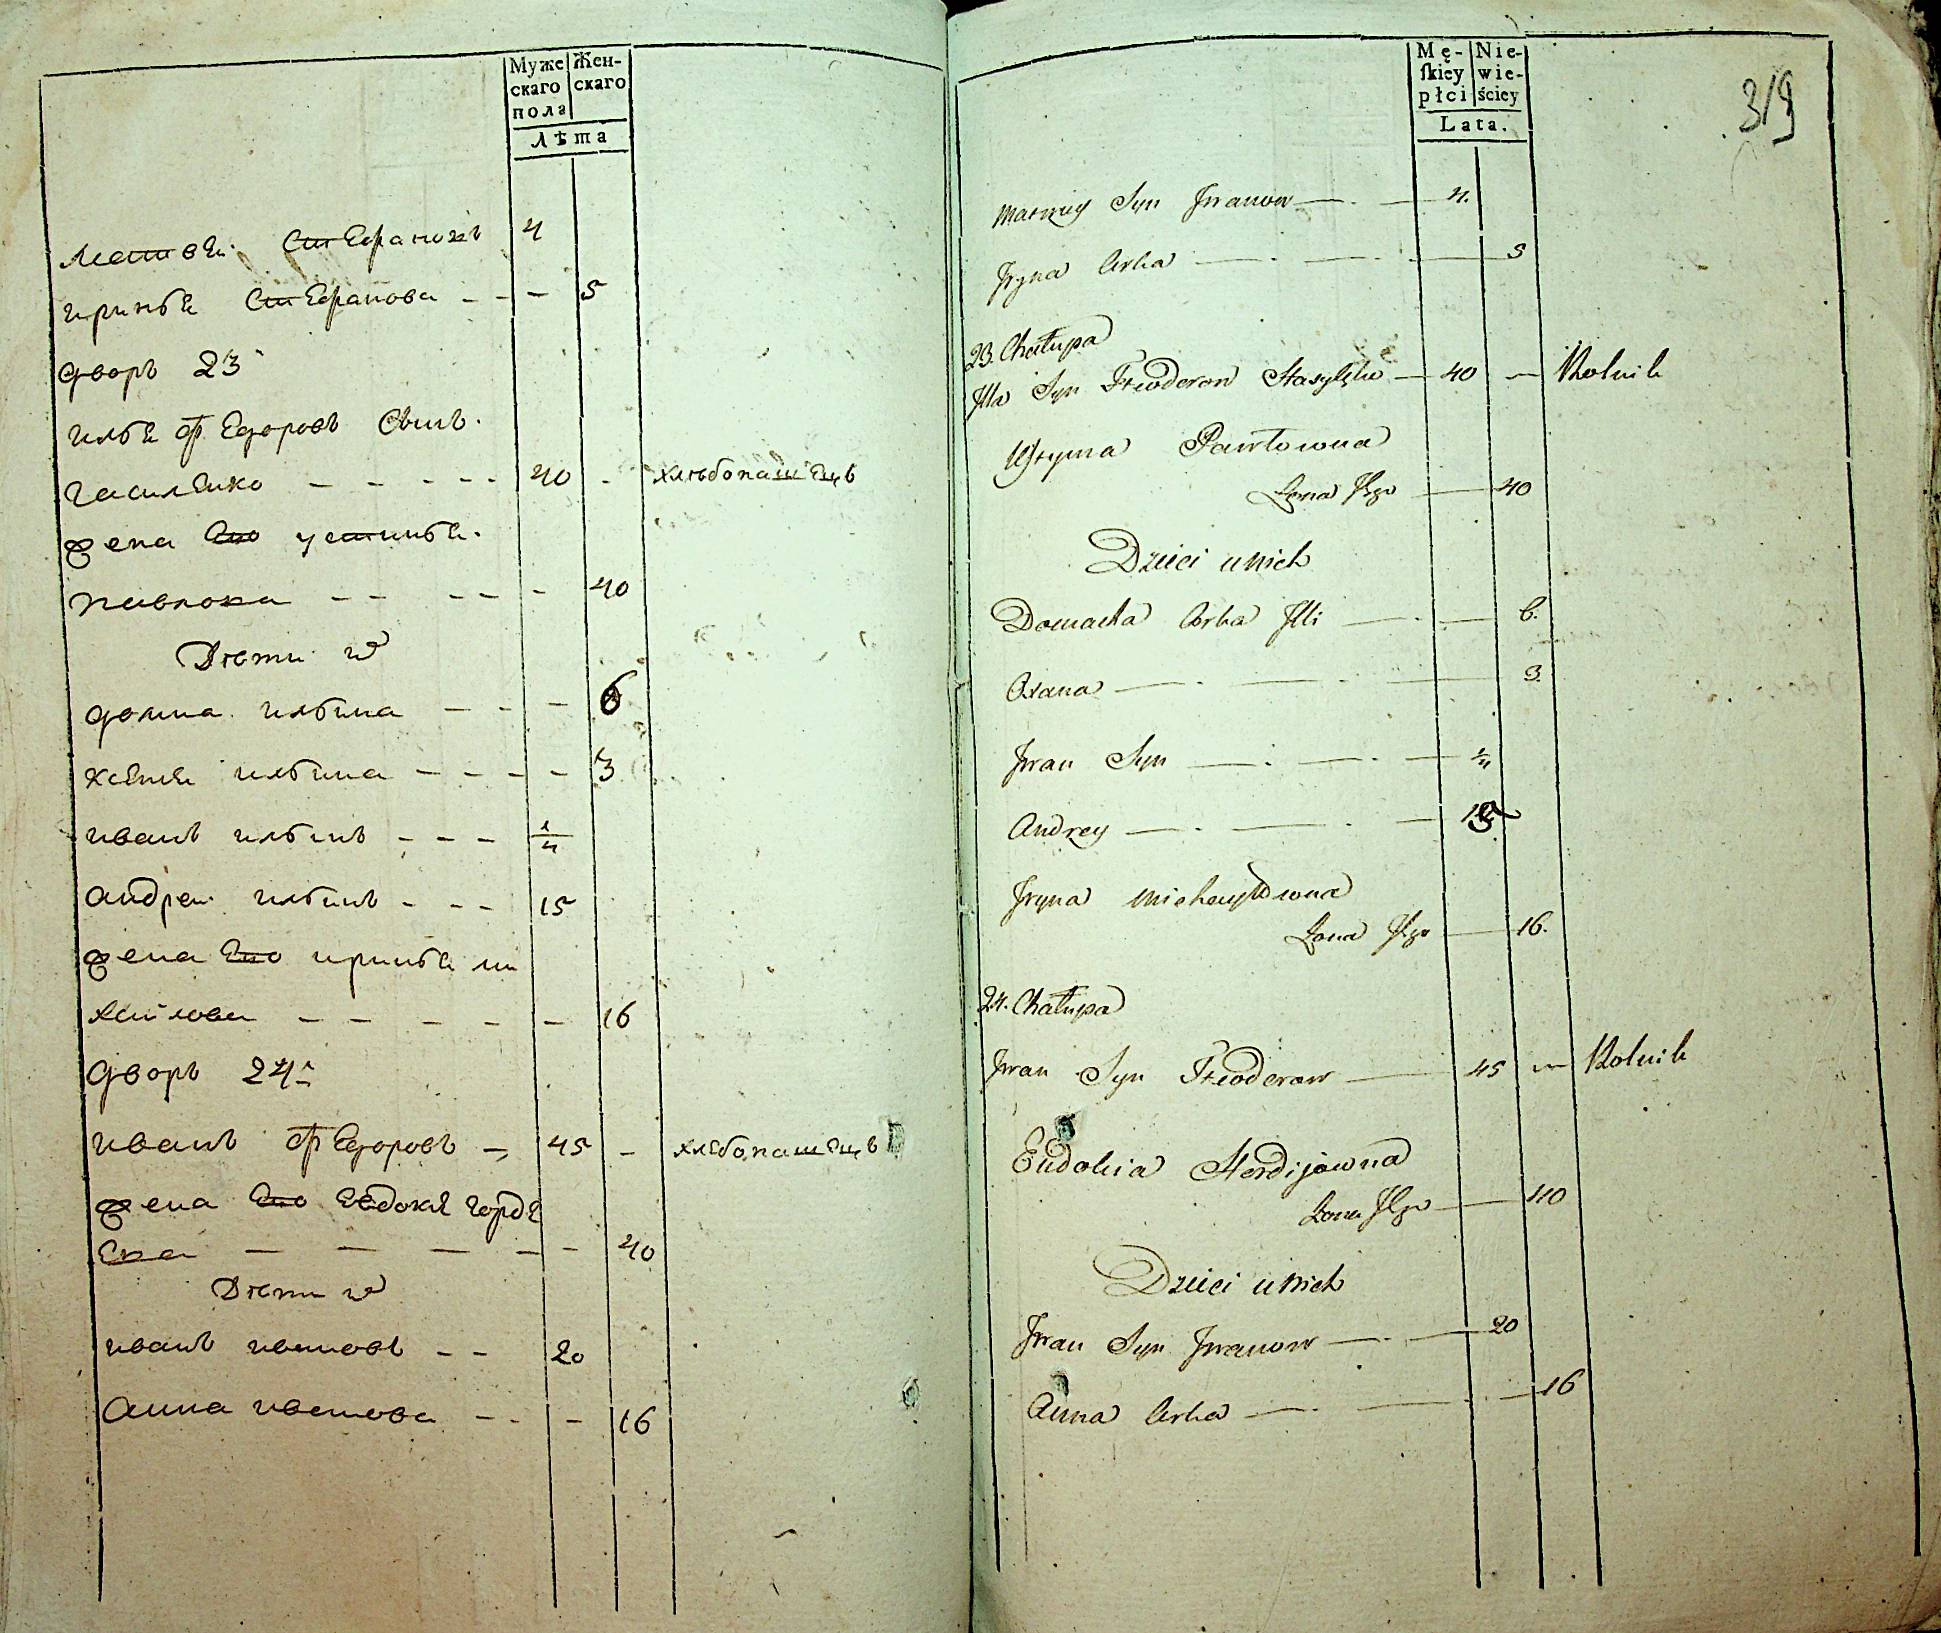 Муже
скаго
пола
Жен-
скаго
Лѣта
матвѣи Стефановъ 4
иринья Стефанова - - - 5
дворъ 23
илья Федоровъ Сынъ
гасиленко - - - - - 40 - хлѣбопашецъ
жена его устинья
павлова - - - - - 40
Дѣти их
домна ильина - - - 6
ксенья ильина - - - - 3
иванъ ильинъ - - - 1/4
андреи ильинъ - - - 15
жена его иринья ми
хаилова - - - - - 16
дворъ 24
иванъ Федоровъ - 45 - хлебопашецъ
жена его Евдокия горде
Ева - - - - - 40
Дѣти их
иванъ ивановъ - - 20
анна иванова - - - 16
Mę-
ſkiey
płci
Nie-
wie-
ściey
Lata.
319
Matwiey Syn Iwanow — . — 4.
Iryna Corka — . — . — 5
23. Chałupa
Illa Syn Fieoderow Hasylęko — 40 — Rolnik
Ustyma Pawłowna
Żona Jego — 40
Dzieci u Nich
Domacha Corka Illi — . — 6.
Oxana — . — . — 3.
Iwan Syn — . — . — 1/4
Andrey — . — . — 15
Iryna Michayłowna
Żona Jego — 16.
24. Chałupa
Iwan Syn Fieoderow — 45 — Rolnik
Eudokia Hordijowna
Żona Jego — 40
Dzieci u Nich
Iwan Syn Iwanow — . — 20
Anna Corka — . — . — 16